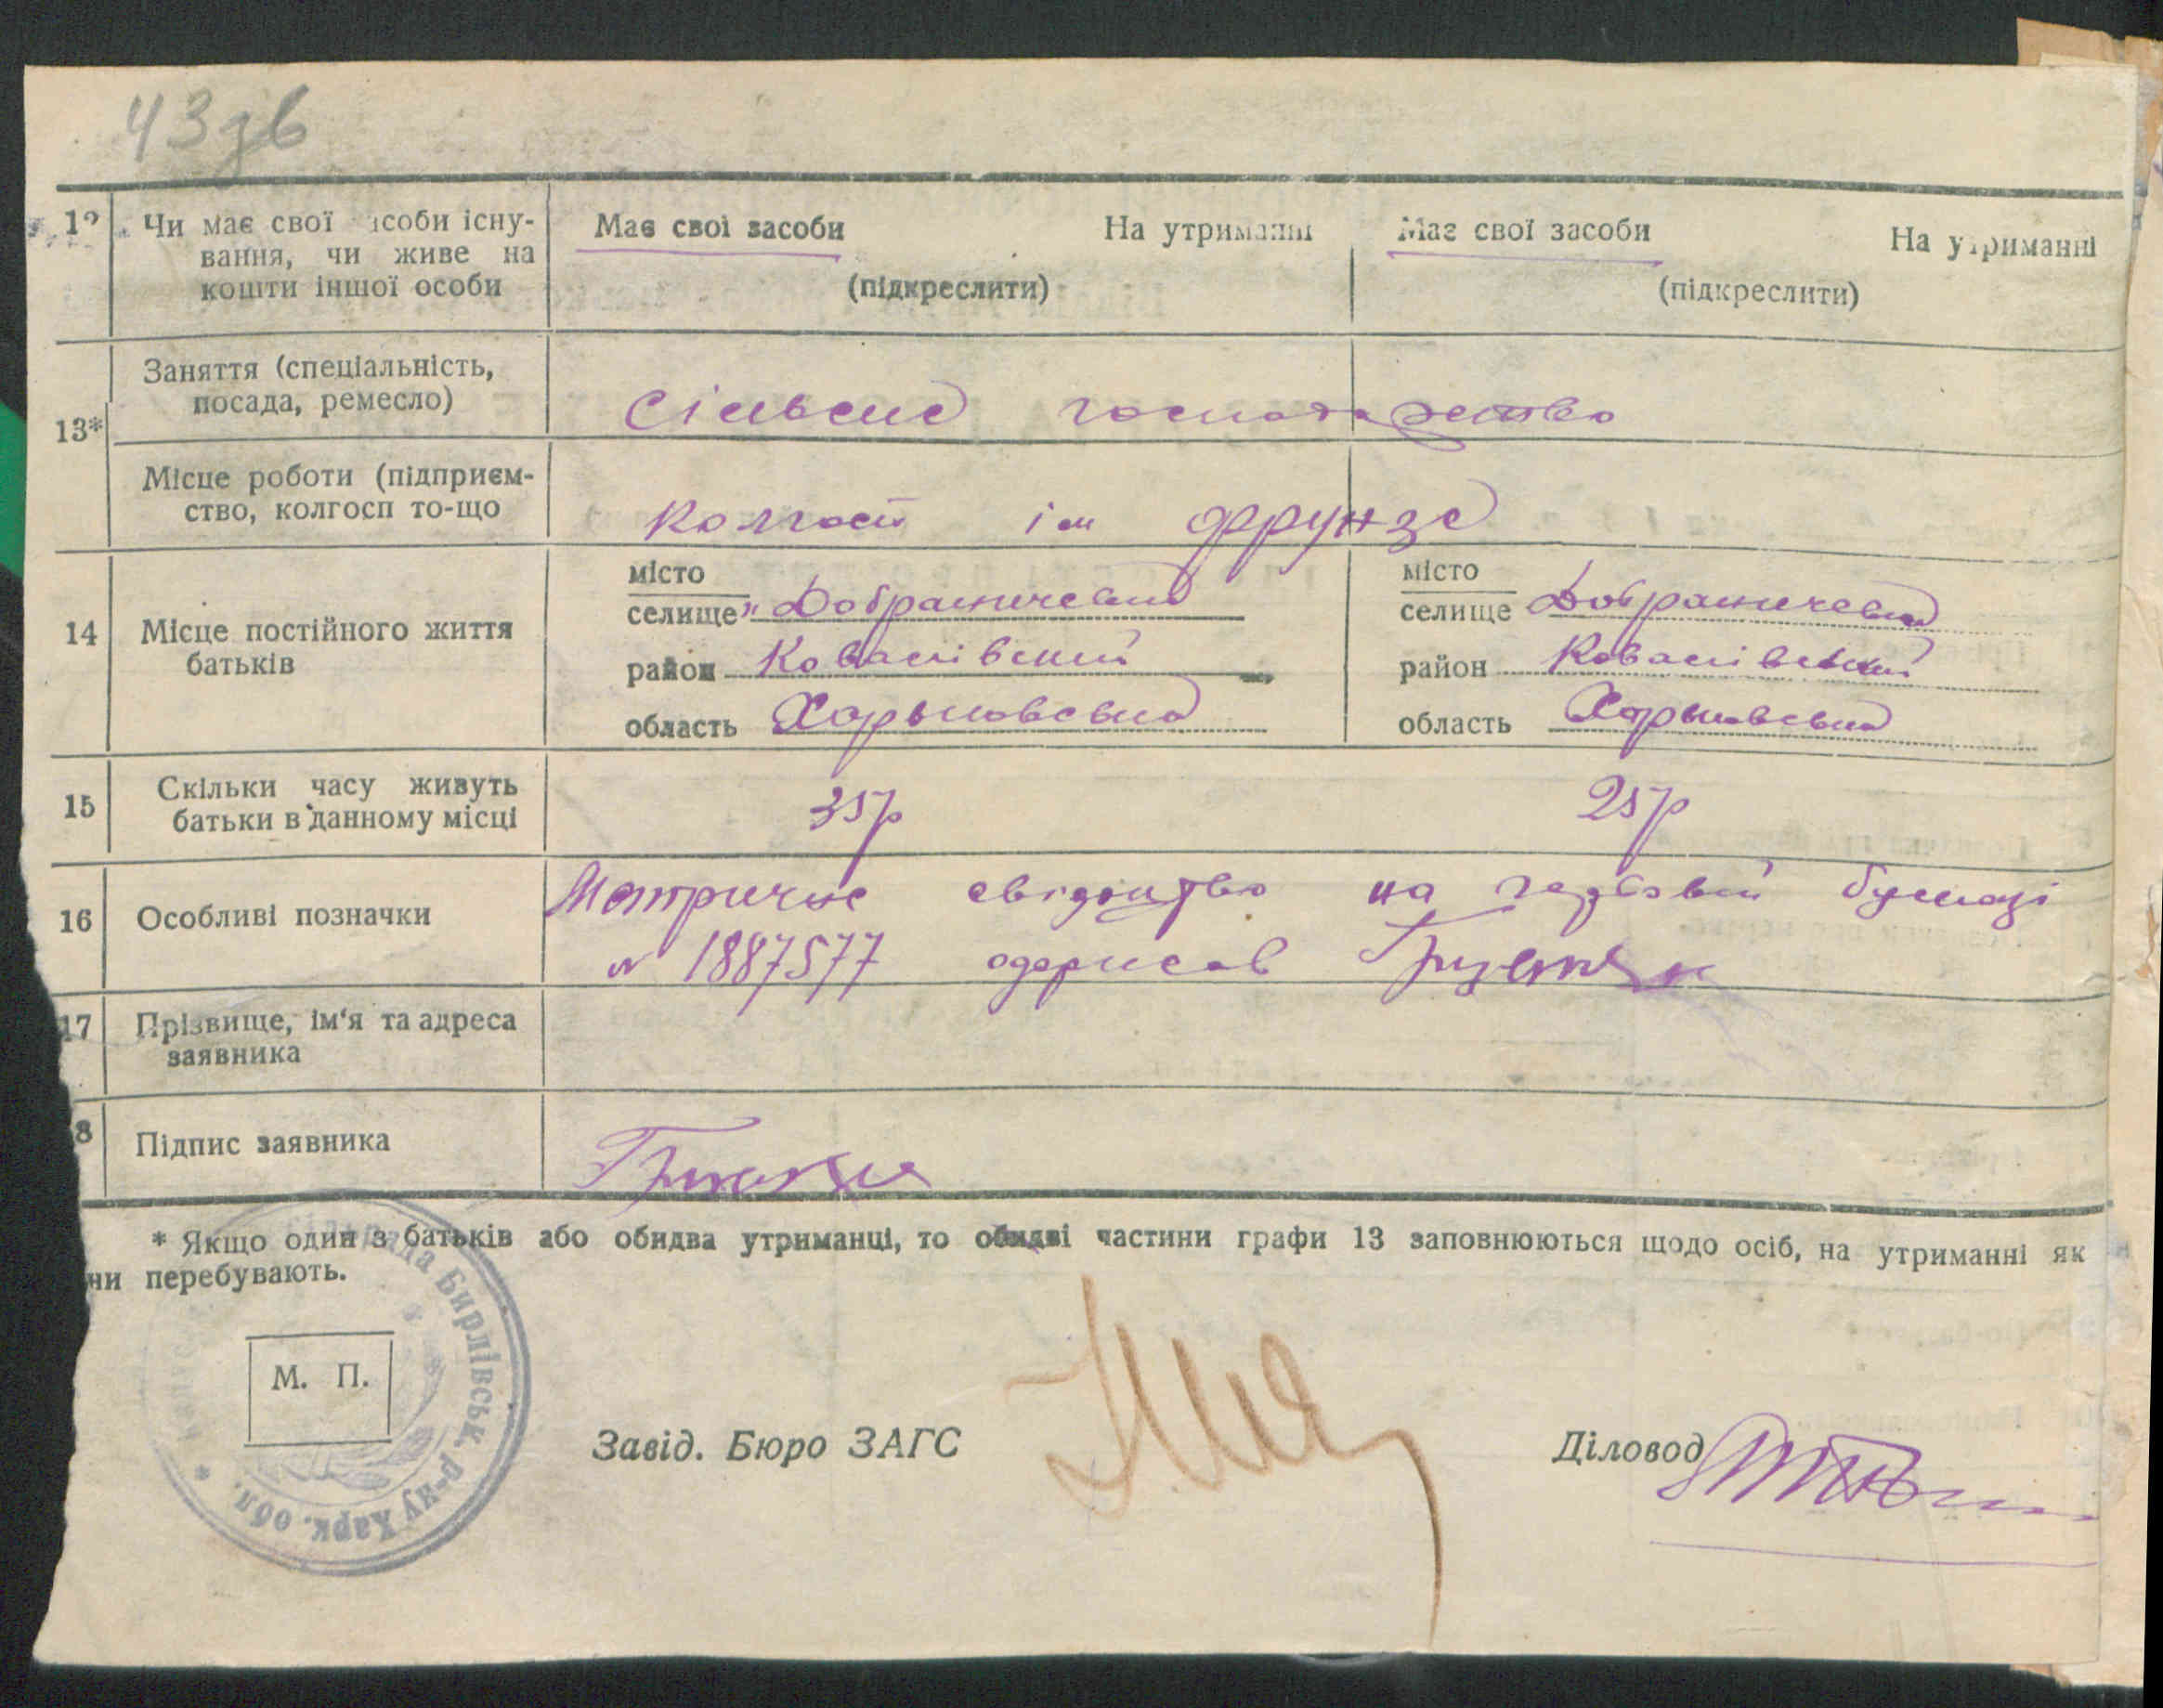 43зв
12 Чи має свої засоби існу-
вання, чи живе на
кошти іншої особи
Має свої засоби На утриманні
(підкреслити)
Має свої засоби На утриманні
(підкреслити)
13*
Заняття (спеціальність,
посада, ремесло)
Сільське господарство
Місце роботи (підприєм-
ство, колгосп то-що
колгосп ім Фрунзе
14 Місце постійного життя
батьків
місто
селище
район
область Харьковська
місто
селище
район
область Харьковська
15 Скільки часу живуть
батьки в данному місці
35р 25р
16 Особливі позначки
Метричне свідоцтво на гербовій бумазі
№ 1887577 одержав
17 Прізвище, ім'я та адреса
заявника
8 Підпис заявника
* Якщо один з батьків або обидва утриманці, то обидві частини графи 13 заповнюються щодо осіб, на утриманні як
ни перебувають.
М. П.
рада Бирлівськ. р-ну Харк. обл.
Завід. Бюро ЗАГС
Діловод